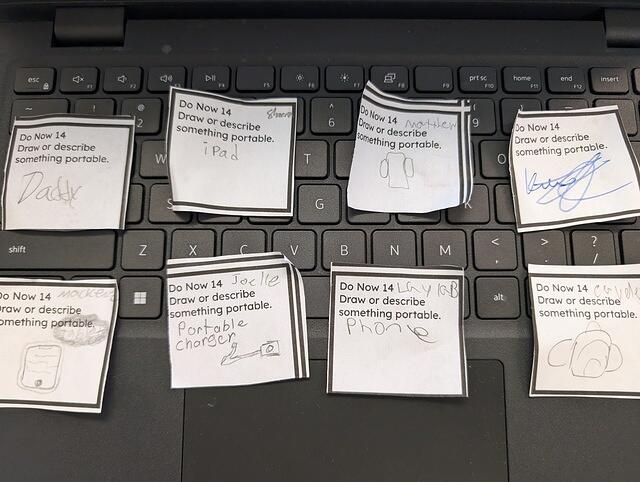 esc
F1
F2
F3
F4
F5
F6
F7
F8
F9
prt sc
F10
home
F11
end
F12
insert
~
!
@
2
^
6
(
9
W
T
O
S
G
K
shift
Z
X
C
V
B
N
M
<
,
>
.
?
/
alt
Do Now 14
Draw or describe
something portable.
Daddy
Do Now 14
Draw or describe
something portable.
iPad
Do Now 14
Draw or describe
something portable.
Do Now 14
Draw or describe
something portable.
Do Now 14
Draw or describe
something portable.
Do Now 14 Joelle
Draw or describe
something portable.
Portable
charger
Do Now 14 Layla B
Draw or describe
something portable.
Phone
Do Now 14
Draw or describe
something portable.